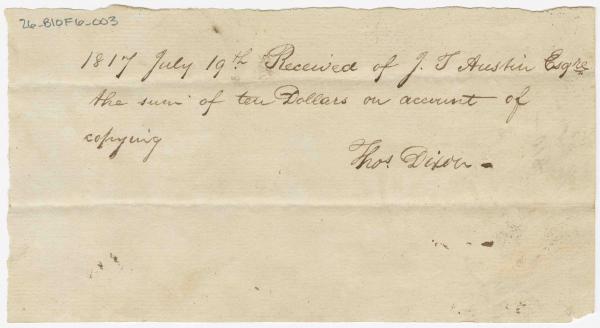 26-B10F6-003
1817 July 19th Received of J. T Austin Esqre
the sum of ten Dollars on account of
copying
Thos Dixon